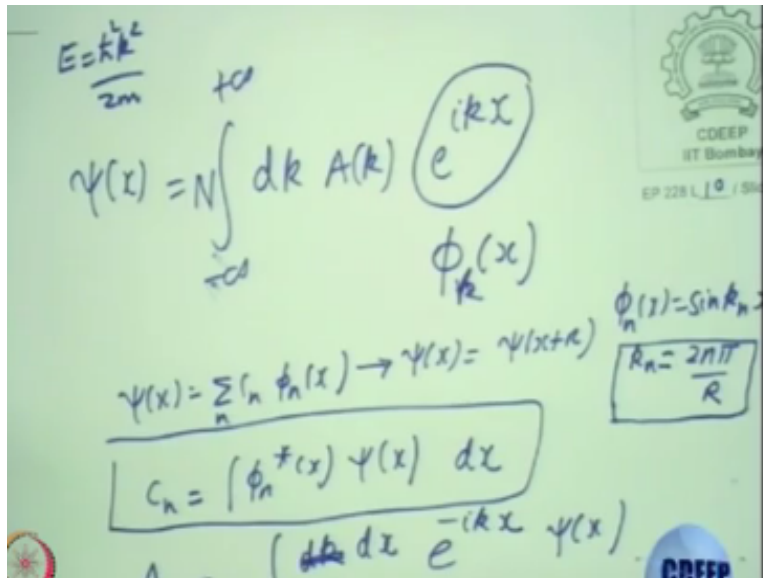 E = ħ²k² / 2m
ψ(x) = N ∫_{-∞}^{+∞} dk A(k) e^{ikx}
ϕ_k(x)
CDEEP
IIT Bombay
EP 228 L 10 /
ϕ_n(x) = sin k_n
k_n = 2nπ / R
ψ(x) = Σ_n C_n ϕ_n(x) → ψ(x) = ψ(x+R)
C_n = ∫ ϕ_n*(x) ψ(x) dx
∫ dx e^{-ikx} ψ(x)
CDEEP